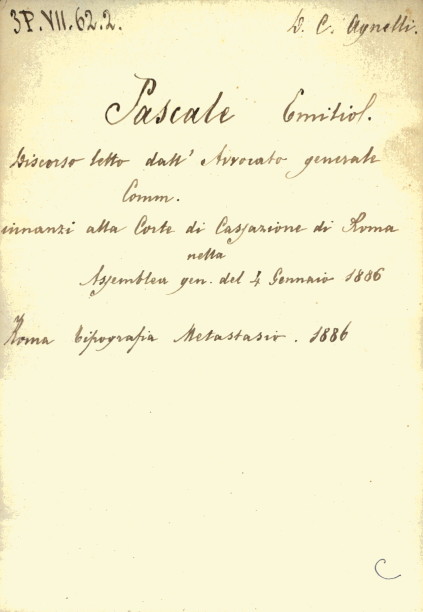 3P.VII.62.2.
D. C. Agnelli.
Pascale Emilio.
Discorso letto dall' Avvocato generale
Comm.
innanzi alla Corte di Cassazione di Roma
nella
Assemblea gen. del 4 Gennaio 1886
Roma Tipografia Metastasio. 1886
C